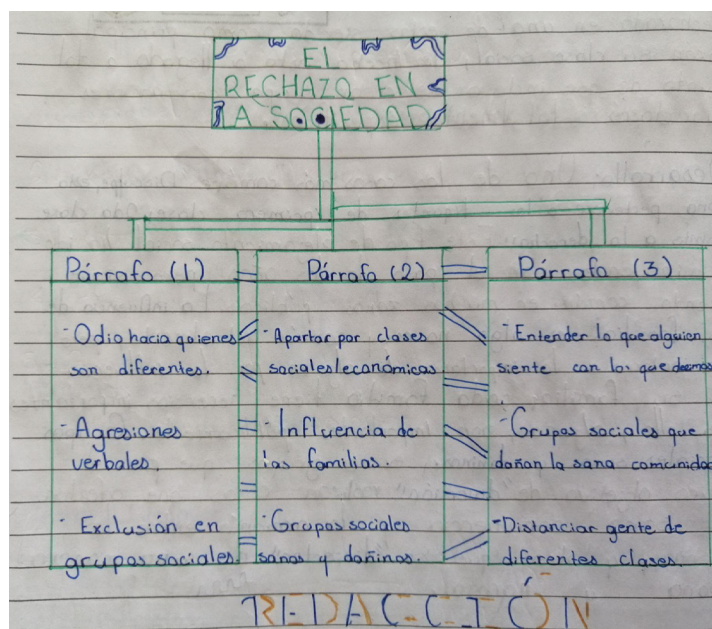 EL
RECHAZO EN
LA SOCIEDAD
Párrafo (1)
- Odio hacia quienes
son diferentes.
- Agresiones
verbales.
- Exclusión en
grupos sociales.
Párrafo (2)
- Apartar por clases
sociales/económicas
- Influencia de
las familias.
- Grupos sociales
sanos y dañinos.
Párrafo (3)
- Entender lo que alguien
siente con lo que
- Grupos sociales que
dañan la sana comunidad
- Distanciar gente de
diferentes clases.
REDACCIÓN